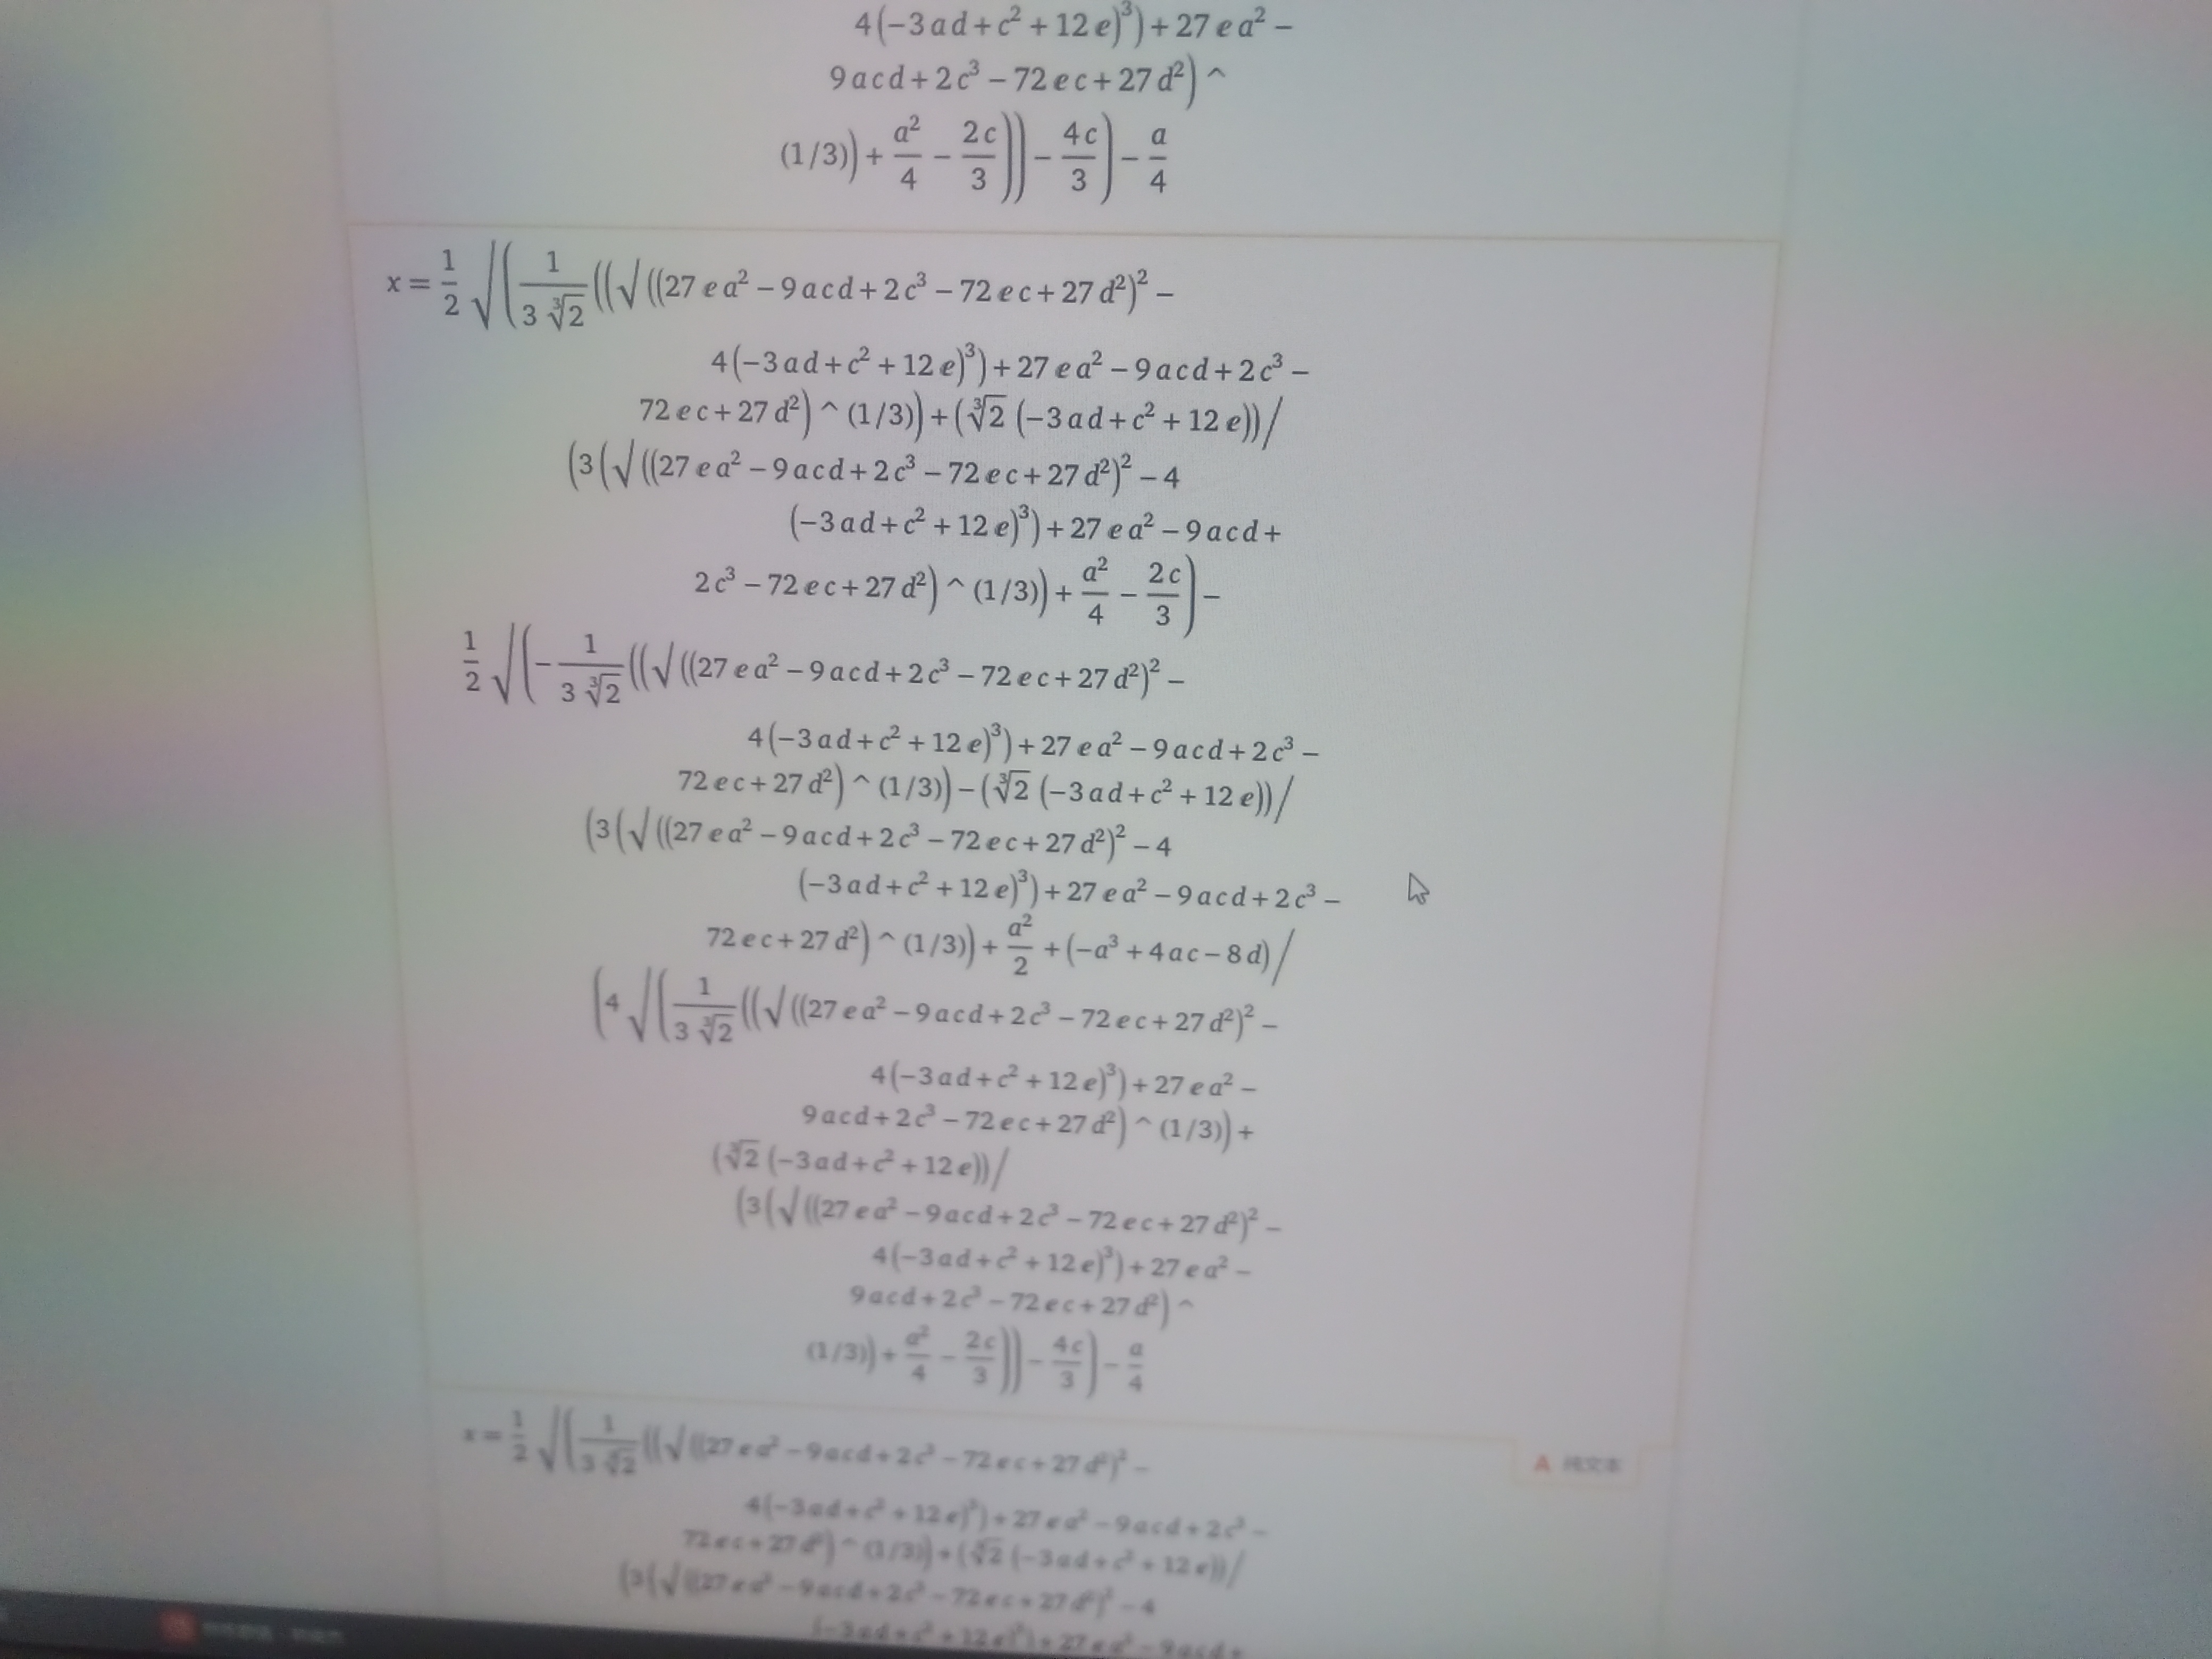 4(−3ad+c²+12e)³)+27ea²−
9acd+2c³−72ec+27d²)^
(1/3))+a²/4−2c/3))−4c/3)−a/4
x=1/2√(1/(3∛2)((√((27ea²−9acd+2c³−72ec+27d²)²−
4(−3ad+c²+12e)³)+27ea²−9acd+2c³−
72ec+27d²)^(1/3))+(∛2(−3ad+c²+12e))/
(3(√((27ea²−9acd+2c³−72ec+27d²)²−4
(−3ad+c²+12e)³)+27ea²−9acd+
2c³−72ec+27d²)^(1/3))+a²/4−2c/3)−
1/2√(−1/(3∛2)((√((27ea²−9acd+2c³−72ec+27d²)²−
4(−3ad+c²+12e)³)+27ea²−9acd+2c³−
72ec+27d²)^(1/3))−(∛2(−3ad+c²+12e))/
(3(√((27ea²−9acd+2c³−72ec+27d²)²−4
(−3ad+c²+12e)³)+27ea²−9acd+2c³−
72ec+27d²)^(1/3))+a²/2+(−a³+4ac−8d)/
(4√(1/(3∛2)((√((27ea²−9acd+2c³−72ec+27d²)²−
4(−3ad+c²+12e)³)+27ea²−
9acd+2c³−72ec+27d²)^(1/3))+
(∛2(−3ad+c²+12e))/
(3(√((27ea²−9acd+2c³−72ec+27d²)²−
4(−3ad+c²+12e)³)+27ea²−
9acd+2c³−72ec+27d²)^
(1/3))+a²/4−2c/3))−4c/3)−a/4
x=1/2√(1/(3∛2)((√((27ea²−9acd+2c³−72ec+27d²)²−
A 纯文本
4(−3ad+c²+12e)³)+27ea²−9acd+2c³−
72ec+27d²)^(1/3))+(∛2(−3ad+c²+12e))/
(3(√((27ea²−9acd+2c³−72ec+27d²)²−4
(−3ad+c²+12e)³)+27ea²−9acd+